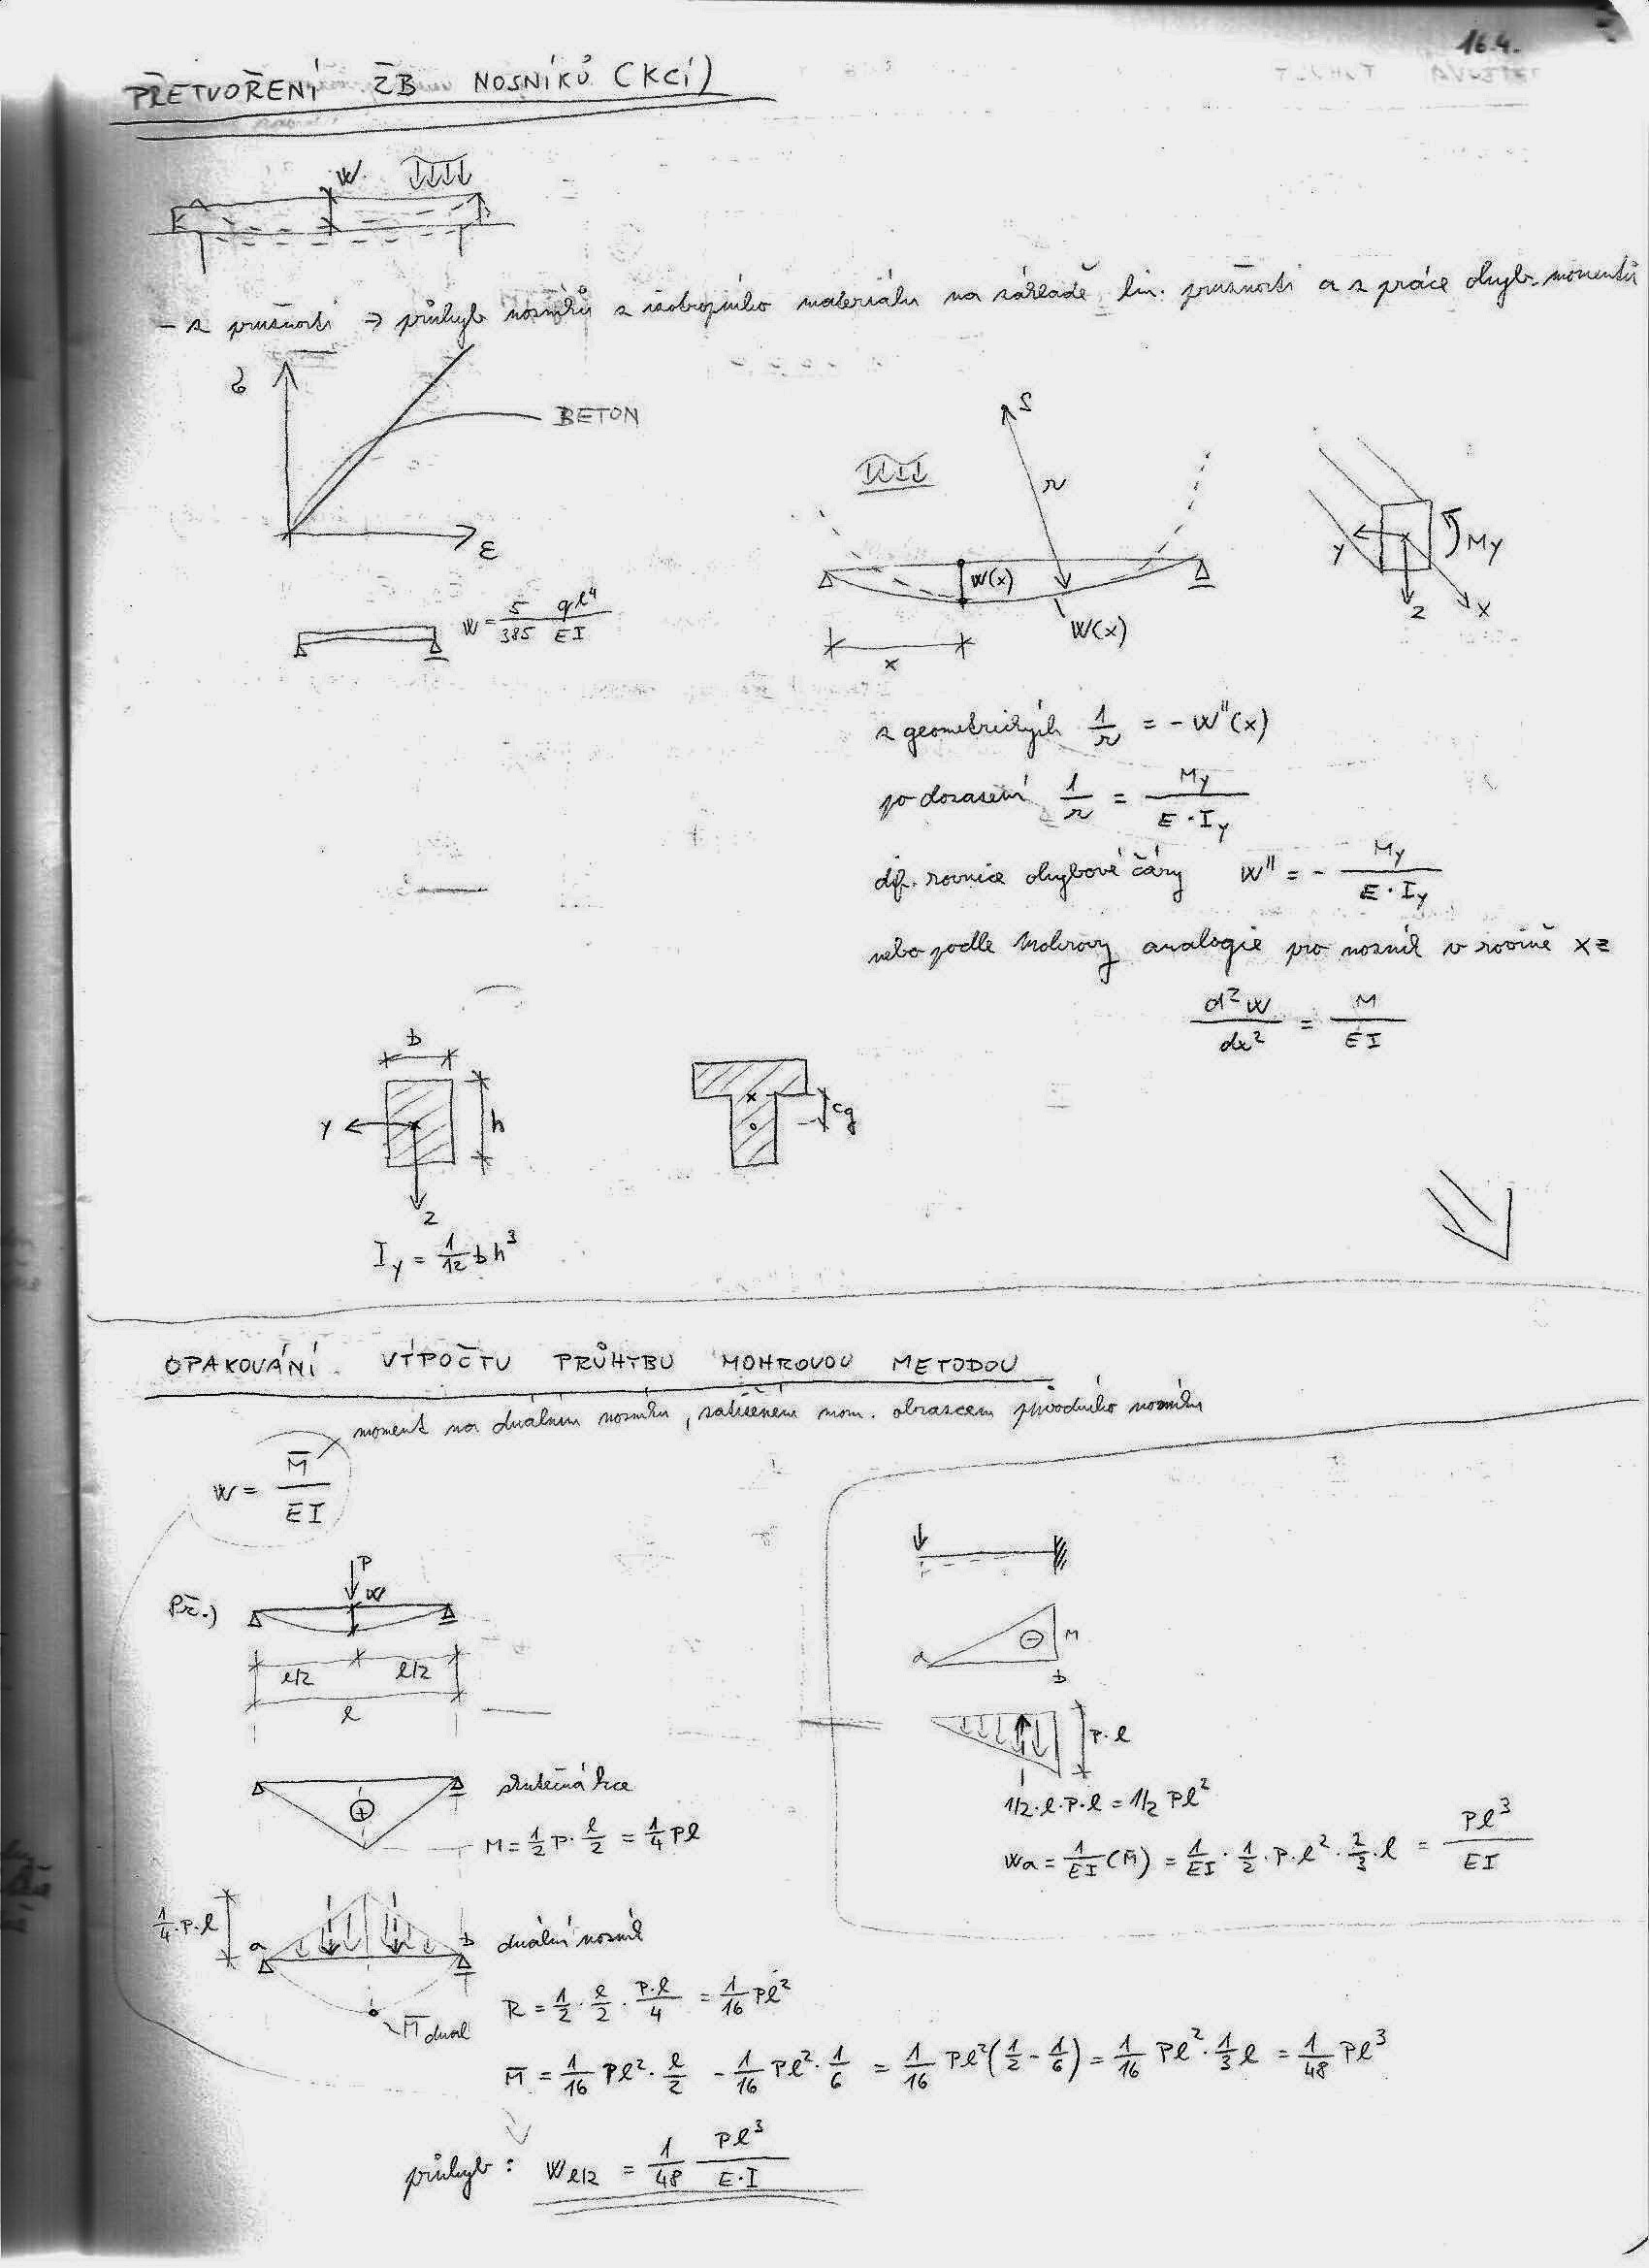 16.4.
PŘETVOŘENÍ ŽB NOSNÍKŮ (KCÍ)
W
- z pružnosti ⇒ průhyb nosníků z izotropního materiálu na základě lin. pružnosti a z práce ohyb. momentů
σ
BETON
ε
S
r
W(x)
W(x)
x
y
My
z
x
w = 5/385 ql⁴/EI
z geometrických 1/r = -W''(x)
po dosazení 1/r = My/E·Iy
dif. rovnice ohybové čáry W'' = - My/E·Iy
nebo podle Mohrovy analogie pro nosník v rovině xz
d²w/dx² = M/EI
b
y
h
z
cg
Iy = 1/12 bh³
OPAKOVÁNÍ VÝPOČTU PRŮHYBU MOHROVOU METODOU
moment na duálním nosníku, zatíženém mom. obrazcem původního nosníku
w = M̄/EI
Př.)
P
w
l/2 l/2
l
+
skutečná kce
M = 1/2 P · l/2 = 1/4 Pl
1/4·P·l
a
b
duální nosník
M̄ dual
R = 1/2 · l/2 · P·l/4 = 1/16 Pl²
M̄ = 1/16 Pl² · l/2 - 1/16 Pl² · 1/6 = 1/16 Pl² (1/2 - 1/6) = 1/16 Pl² · 1/3 l = 1/48 Pl³
průhyb: W l/2 = 1/48 Pl³/E·I
a
-
M
b
P·l
1/2·l·P·l = 1/2 Pl²
Wa = 1/EI (M̄) = 1/EI · 1/2 · P·l² · 2/3 · l = Pl³/EI